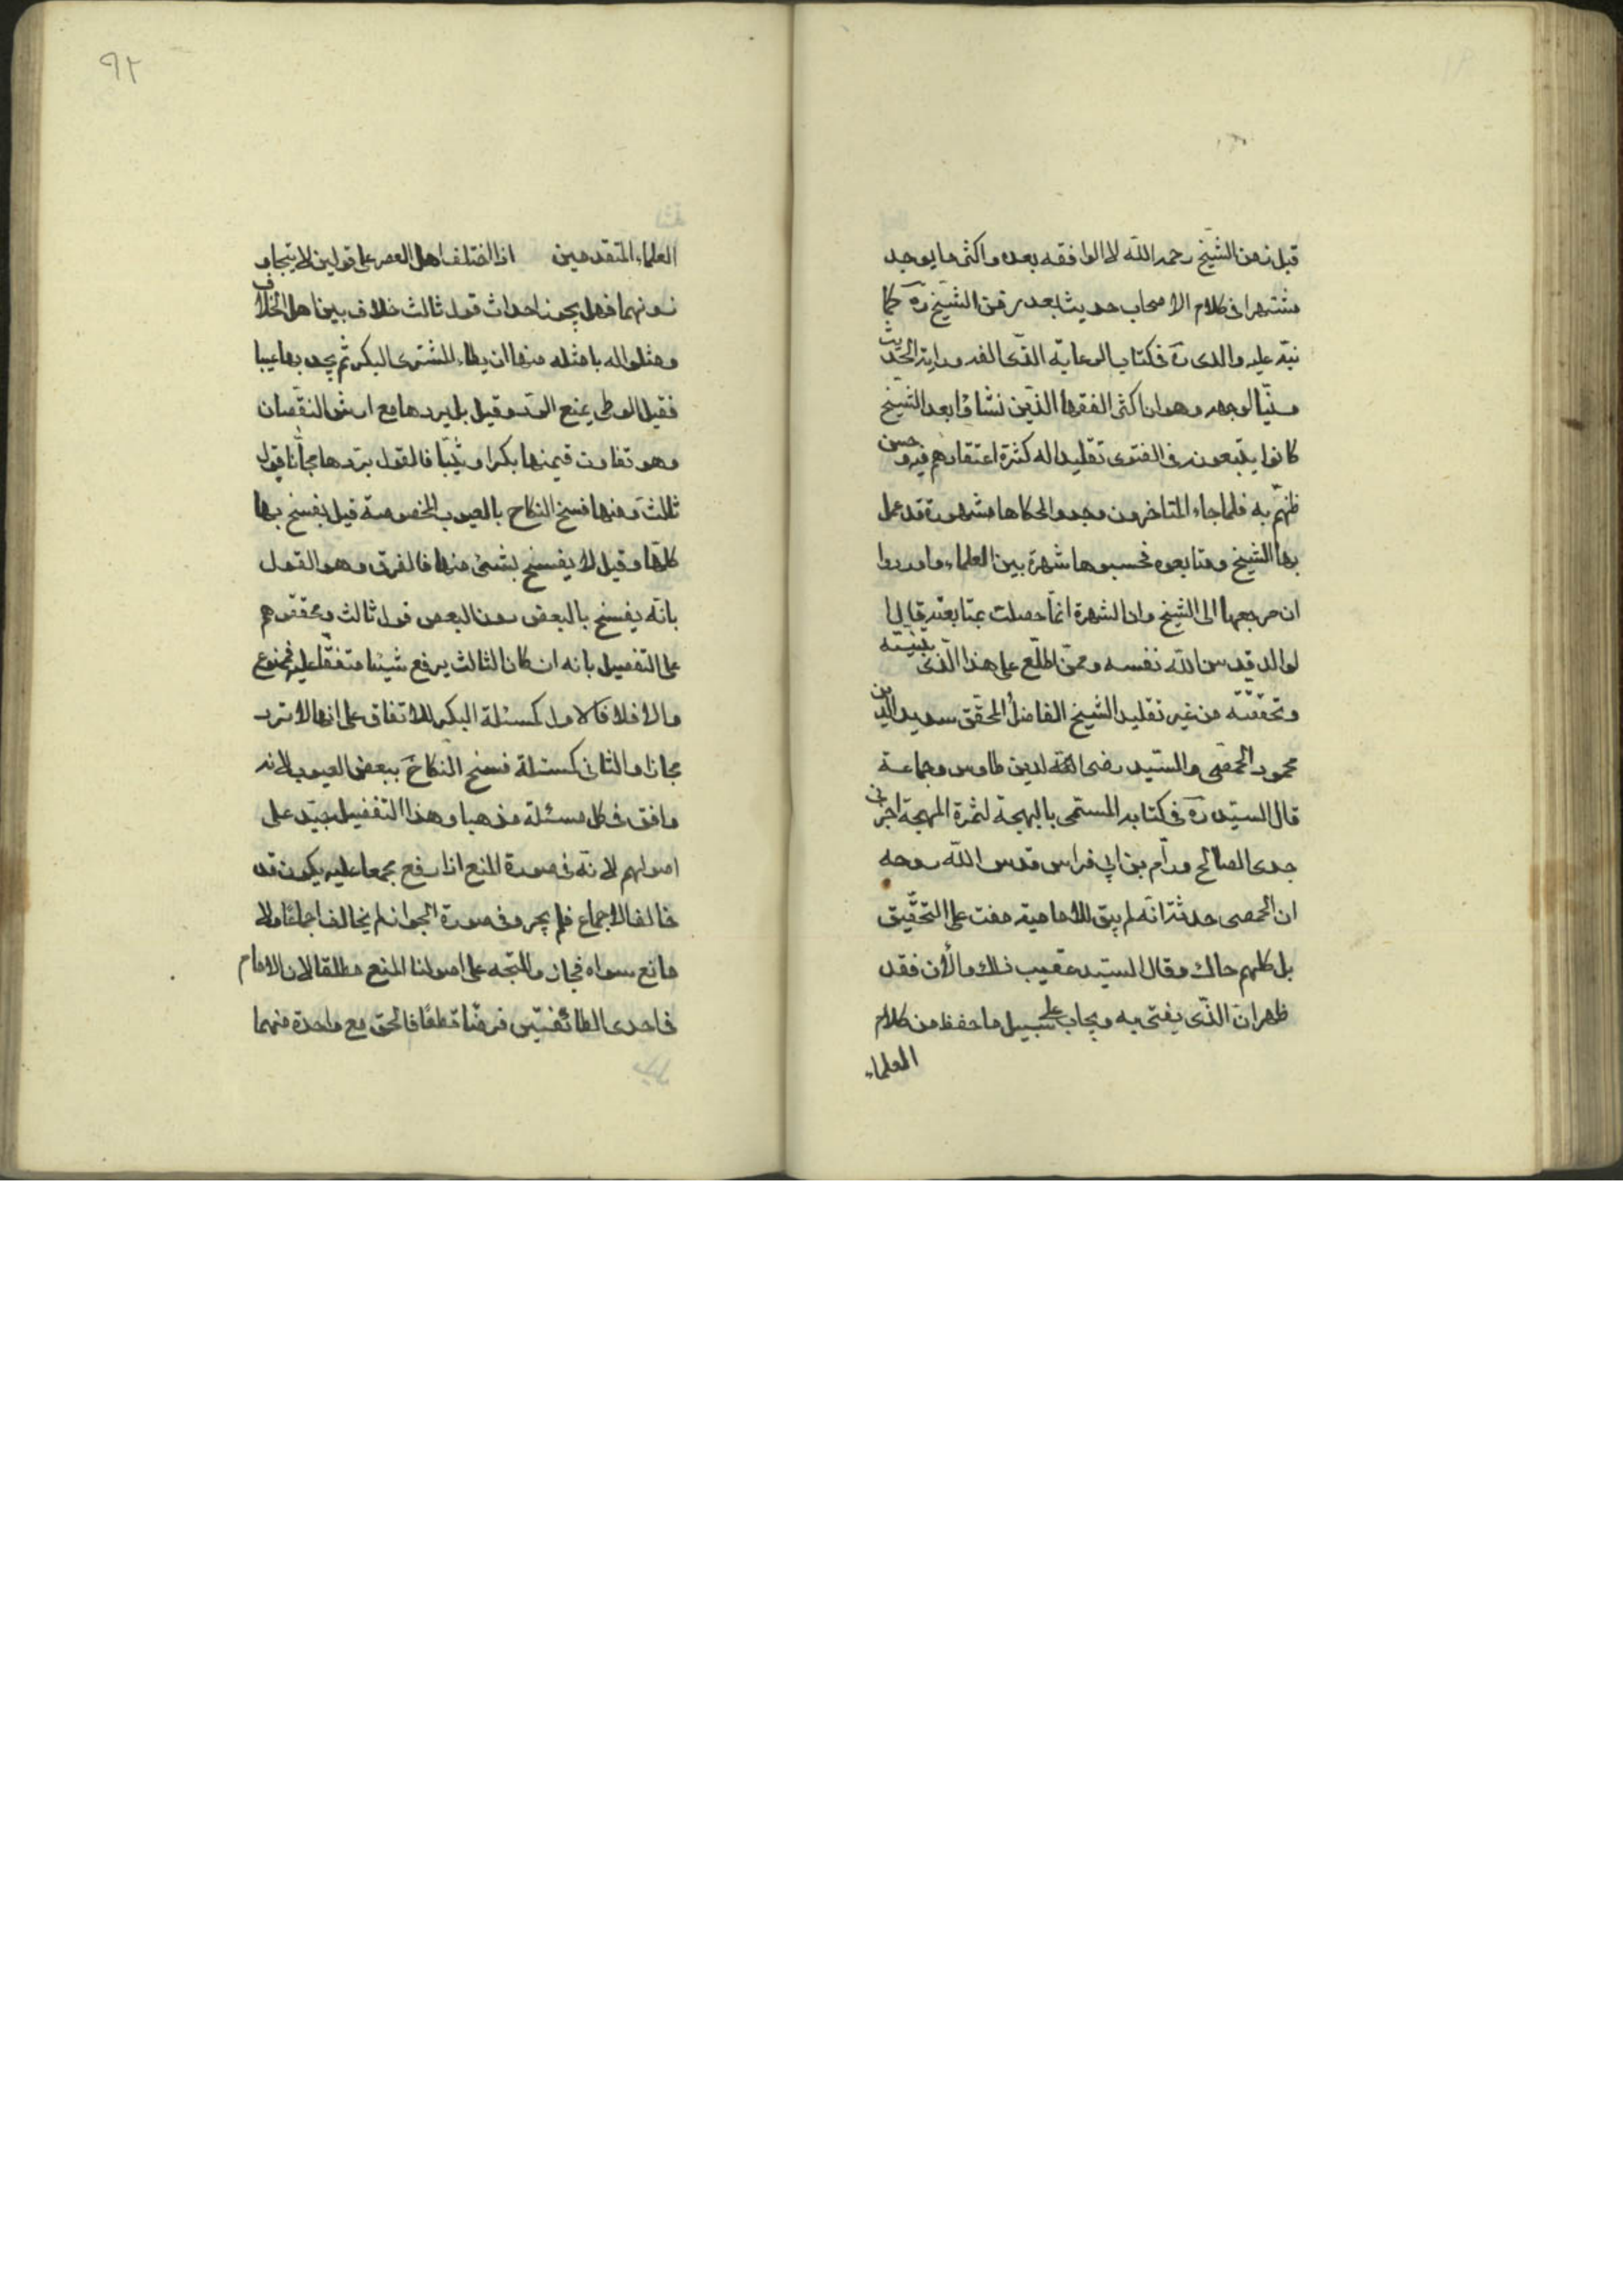 قبل زمن الشيخ رحمه الله لا الوافقه بعده واكثر ما يوجد
مشتهرا فى كلام الاصحاب حديثا بعد زمن الشيخ ره كما
نبّه عليه والدى ره فى كتاب الرعاية الذى الفه فى دراية الحديث
مبيّنا لوجهه وهو ان اكثر الفقها الذين نشاؤا بعد الشيخ
كانوا يتبعونه فى الفتوى تقليدا له كثرة اعتقادهم فيه وحسن
ظنهم به فلما جاء المتاخرون وجدوا احكاما مشهورة قد عمل
بها الشيخ ومتابعوه فحسبوها شهرة بين العلماء وما دروا
ان مرجعها الى الشيخ وان الشهرة انما حصلت بمتابعته قال
الوالد قدس الله نفسه وممن اطلع على هذا الذى بينته
وتحققته من غير تقليد الشيخ الفاضل المحقق سديد الدين
محمود الحمصى والسيد رضى الدين طاوس وجماعة
قال السيد ره فى كتابه المسمى بالبهجة لثمرة المهجة اخبرنى
جدى الصالح ورّام بن ابى فراس قدس الله روحه
ان الحمصى حدثه انه لم يبق للامامية مفت على التحقيق
بل كلهم حاك وقال السيد عقيب ذلك والأن فقد
ظهر ان الذى يفتى به ويجاب على سبيل ما حفظ من كلام
العلماء
٩٢
العلماء المتقدمين اذا اختلف اهل العصر على قولين لا يتجاوزونهما
فهل يجوز احداث قول ثالث خلاف بين اهل الخلاف
ومثلوا له بامثله منها ان يطاء المشترى البكر ثم يجد بها عيبا
فقيل الوطى يمنع الرد وقيل بل يردها مع ارش النقصان
وهو تفاوت قيمتها بكرا وثيّبا فالقول بردها مجانا قول
ثالث ومنها فسخ النكاح بالعيوب المخصوصة قيل يفسخ بها
كلها وقيل لا يفسخ بشئ منها فالفرق وهو القول
بانه يفسخ بالبعض دون البعض قول ثالث ومحققوهم
على التفصيل بانه ان كان الثالث يرفع شيئا متفقا عليه فممنوع
والا فلا فالاول كمسئلة البكر للاتفاق على انها لا ترد
مجانا والثانى كمسئلة فسخ النكاح ببعض العيوب لانه
وافق فى كل مسئلة مذهبا وهذا التفصيل جيّد على
اصولهم لانه فى صورة المنع اذا رفع مجمعا عليه يكون قد
خالف الاجماع فلم يجز وفى صورة الجواز لم يخالف اجماعا ولا
مانع سواه فجاز والمتجه على اصولنا المنع مطلقا لان الامام
فى احدى الطائفتين فرضا قطعا فالحق مع واحدة منهما